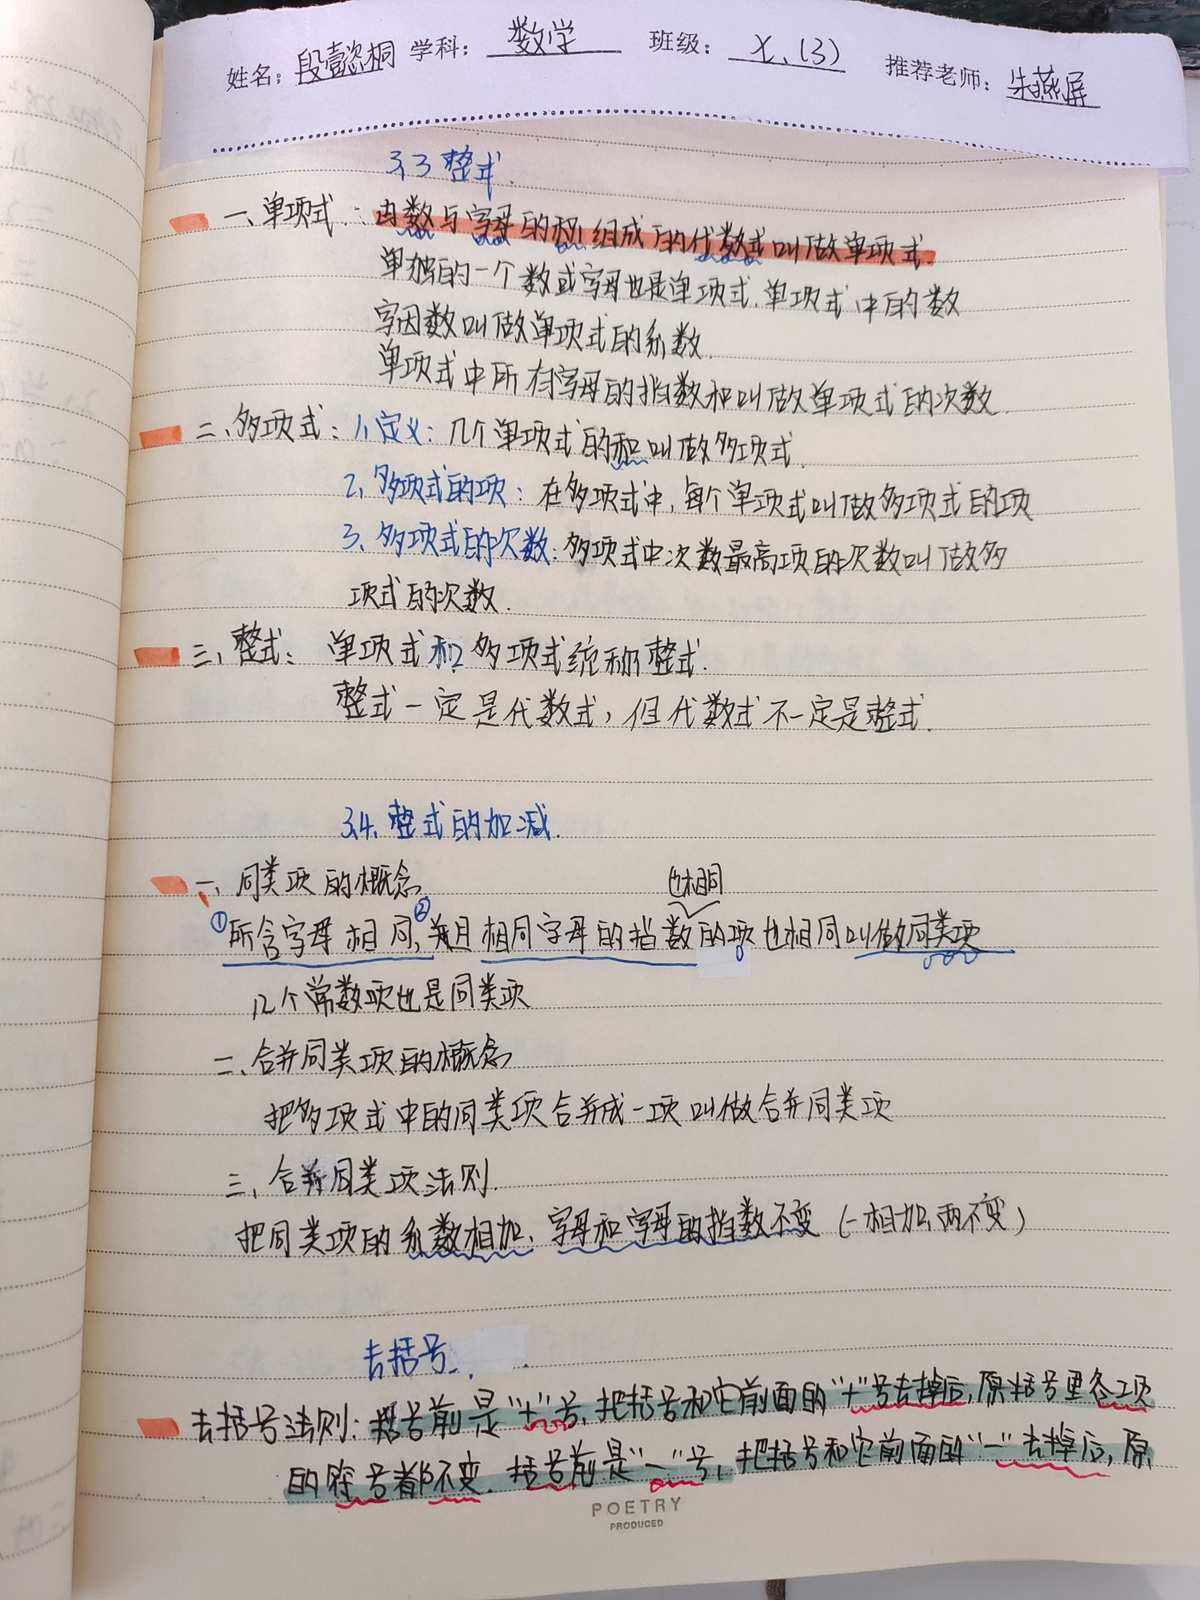 姓名：段懿桐 学科：数学 班级：七、(3) 推荐老师：朱燕屏
3.3 整式.
一、单项式：由数与字母的积组成的代数式叫做单项式.
单独的一个数或字母也是单项式.单项式中的数
字因数叫做单项式的系数.
单项式中所有字母的指数和叫做单项式的次数.
二、多项式：1、定义：几个单项式的和叫做多项式.
2、多项式的项：在多项式中,每个单项式叫做多项式的项
3、多项式的次数：多项式中次数最高项的次数叫做多
项式的次数.
三、整式：单项式和多项式统称整式.
整式一定是代数式，但代数式不一定是整式.
3.4.整式的加减.
一、同类项的概念
也相同
①所含字母相同,②并且相同字母的指数的项也相同叫做同类项
几个常数项也是同类项
二、合并同类项的概念
把多项式中的同类项合并成一项叫做合并同类项
三、合并同类项法则.
把同类项的系数相加,字母和字母的指数不变(一相加,两不变)
去括号.
去括号法则：括号前是"+"号,把括号和它前面的"+"号去掉后,原括号里各项
的符号都不变.括号前是"-"号,把括号和它前面的"-"去掉后,原
POETRY
PRODUCED